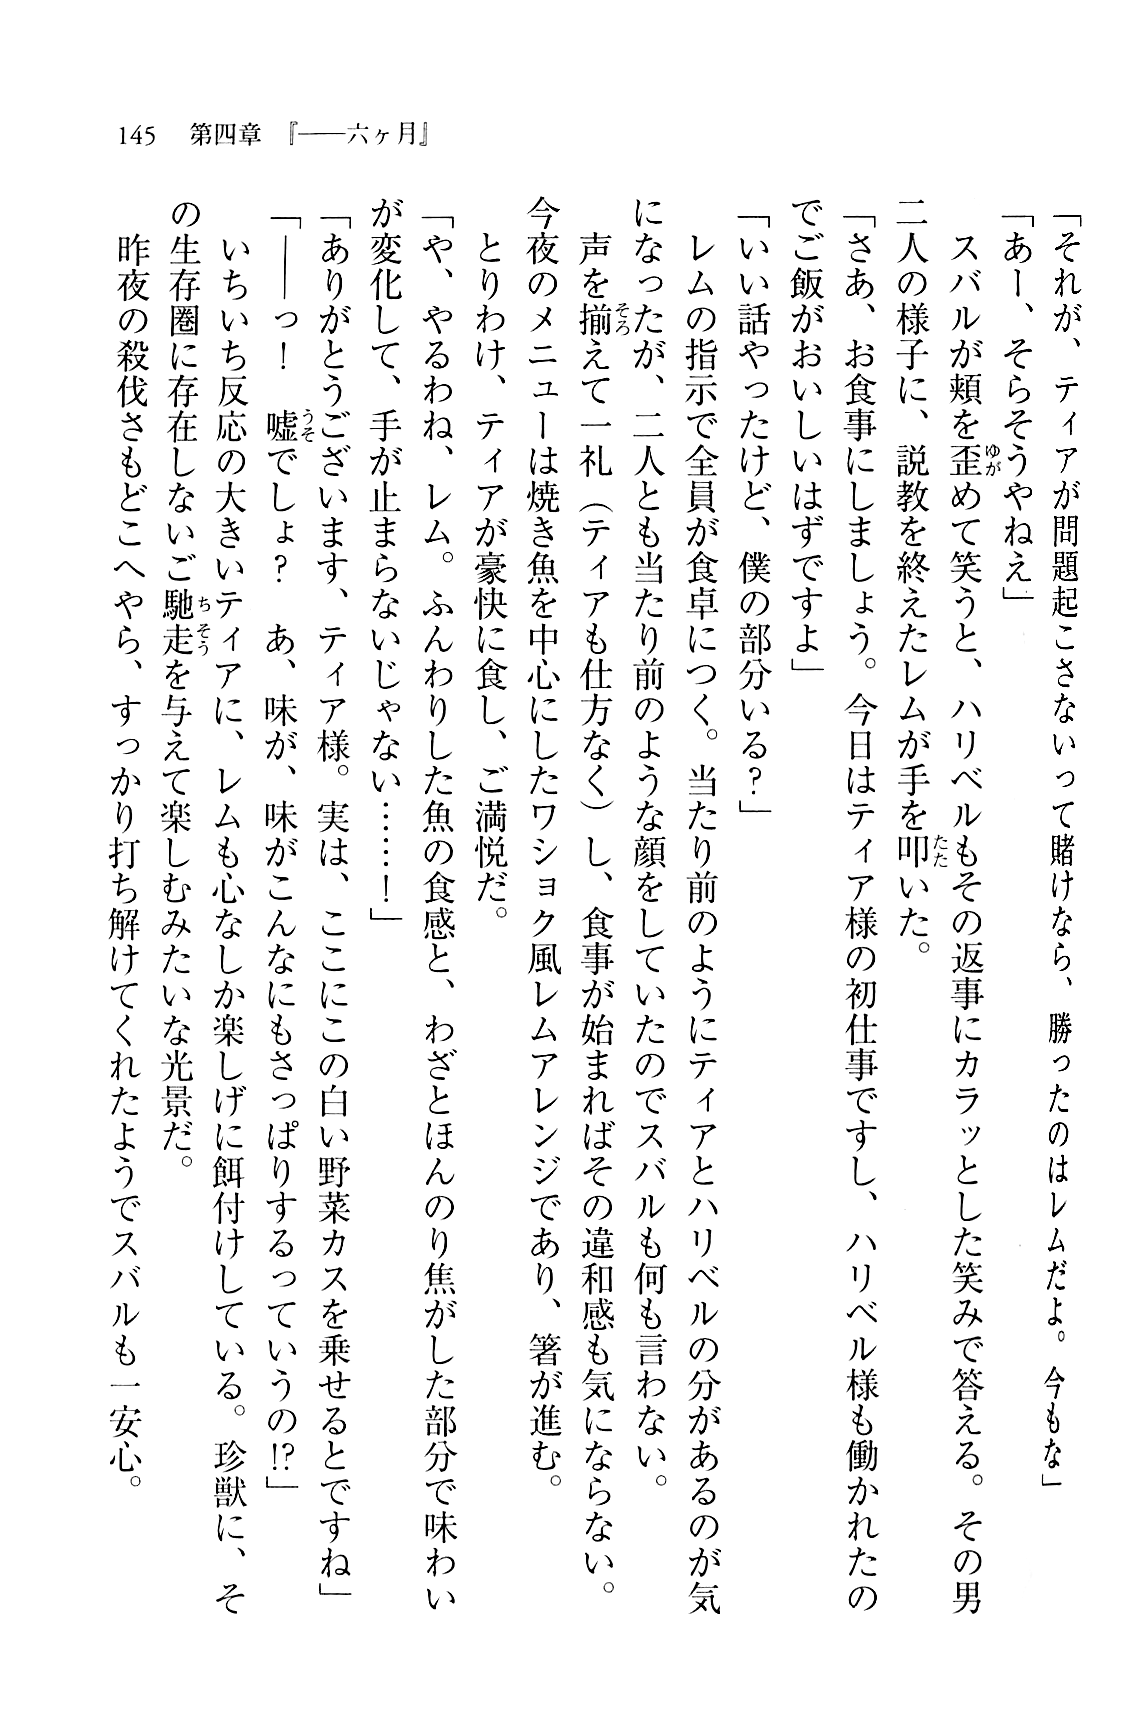 145　第四章　『――六ヶ月』
「それが、ティアが問題起こさないって賭けなら、勝ったのはレムだよ。今もな」
「あー、そらそうやねえ」
　スバルが頬を歪めて笑うと、ハリベルもその返事にカラッとした笑みで答える。その男
二人の様子に、説教を終えたレムが手を叩いた。
「さあ、お食事にしましょう。今日はティア様の初仕事ですし、ハリベル様も働かれたの
でご飯がおいしいはずですよ」
「いい話やったけど、僕の部分いる？」
　レムの指示で全員が食卓につく。当たり前のようにティアとハリベルの分があるのが気
になったが、二人とも当たり前のような顔をしていたのでスバルも何も言わない。
　声を揃えて一礼（ティアも仕方なく）し、食事が始まればその違和感も気にならない。
今夜のメニューは焼き魚を中心にしたワショク風レムアレンジであり、箸が進む。
　とりわけ、ティアが豪快に食し、ご満悦だ。
「や、やるわね、レム。ふんわりした魚の食感と、わざとほんのり焦がした部分で味わい
が変化して、手が止まらないじゃない……！」
「ありがとうございます、ティア様。実は、ここにこの白い野菜カスを乗せるとですね」
「――っ！　嘘でしょ？　あ、味が、味がこんなにもさっぱりするっていうの!?」
　いちいち反応の大きいティアに、レムも心なしか楽しげに餌付けしている。珍獣に、そ
の生存圏に存在しないご馳走を与えて楽しむみたいな光景だ。
　昨夜の殺伐さもどこへやら、すっかり打ち解けてくれたようでスバルも一安心。